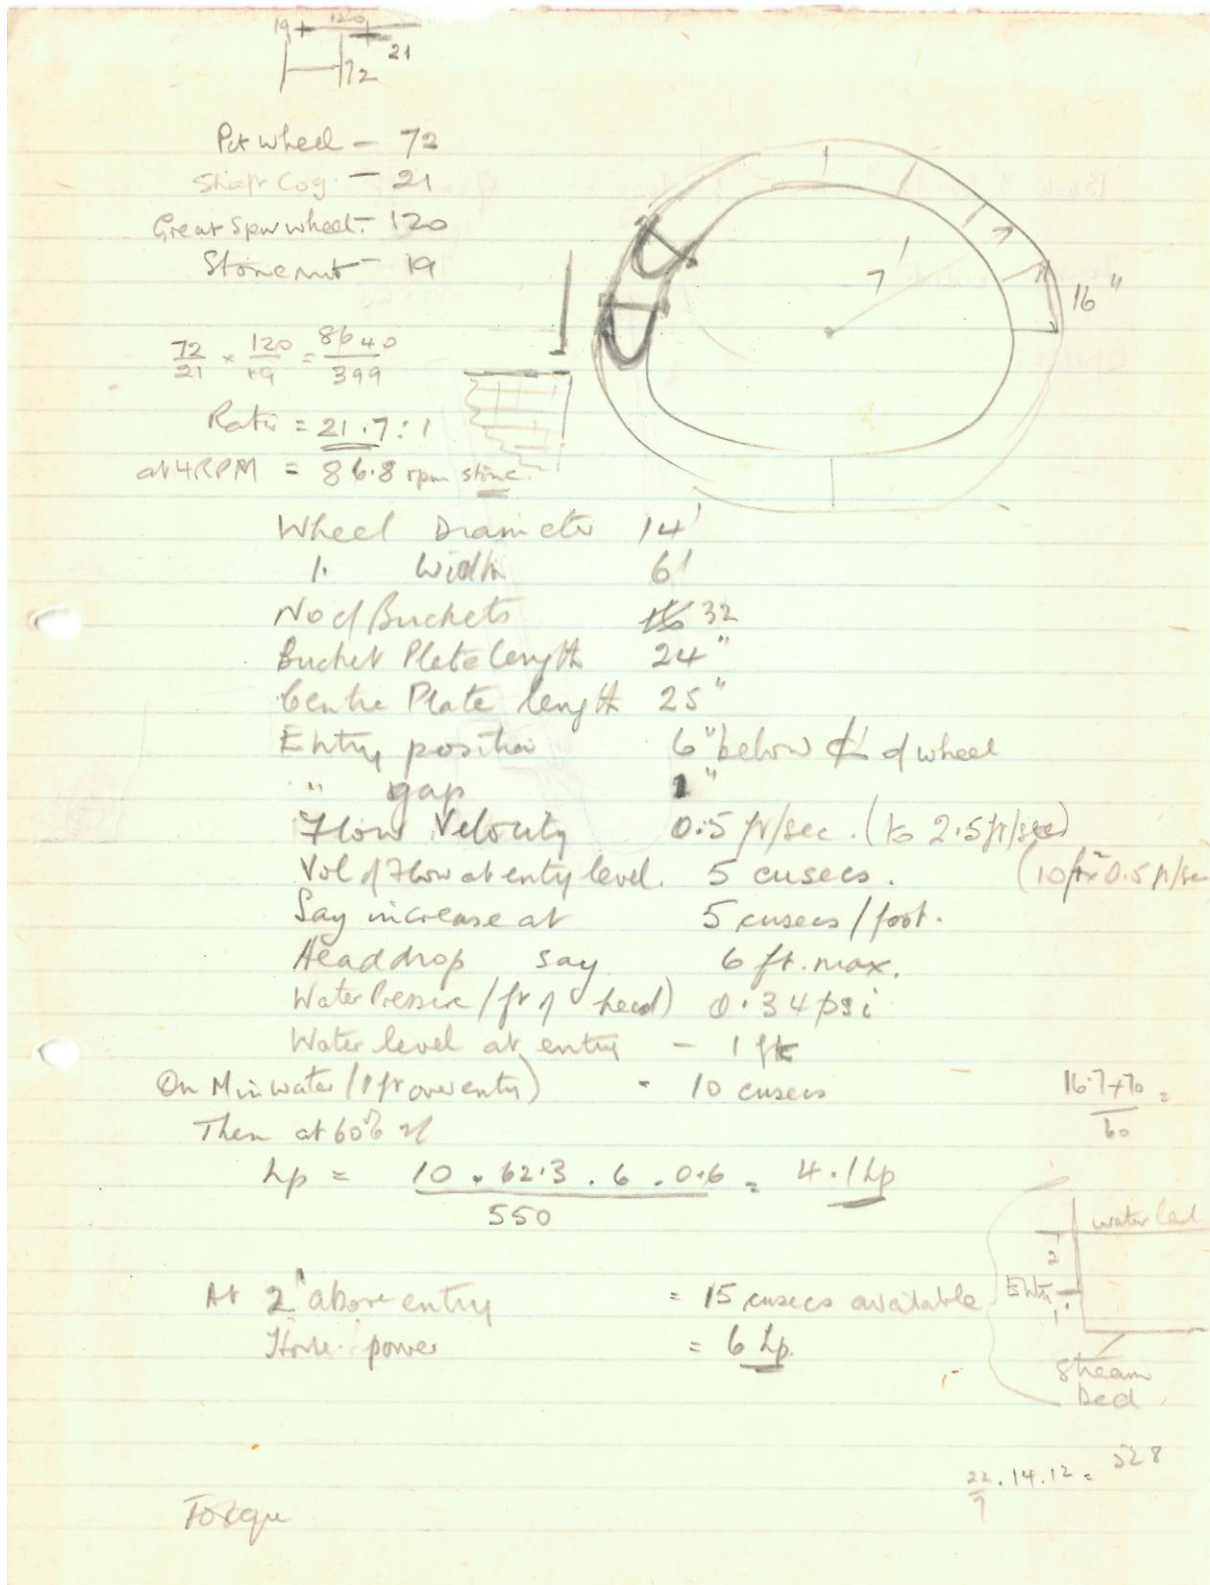 19 120
21
72
Pit wheel - 72
Shaft Cog - 21
Great Spur wheel - 120
Stone nut - 19
7'
16"
72/21 × 120/19 = 8640/399
Ratio = 21.7 : 1
at 4 RPM = 86.8 rpm stone.
Wheel Diameter 14'
" Width 6'
No of Buckets 32
Bucket Plate length 24"
Centre Plate length 25"
Entry position 6" below ℄ of wheel
" gap 1"
Flow Velocity 0.5 ft/sec. (to 2.5 ft/sec)
Vol of Flow at entry level. 5 cusecs. (10ft² x 0.5 ft/sec
Say increase at 5 cusecs/foot.
Head drop say 6 ft. max.
Water Pressure/ft of head) 0.34 psi
Water level at entry - 1 ft
On Min water (1 ft over entry) - 10 cusecs
16.7+70 =
60
Then at 60% eff
hp = 10 . 62.3 . 6 . 0.6 = 4.1 hp
550
water level
2'
Entry
1'
stream
bed
At 2' above entry = 15 cusecs available
Horse power = 6 hp.
22/7 . 14 . 12 = 528
Torque